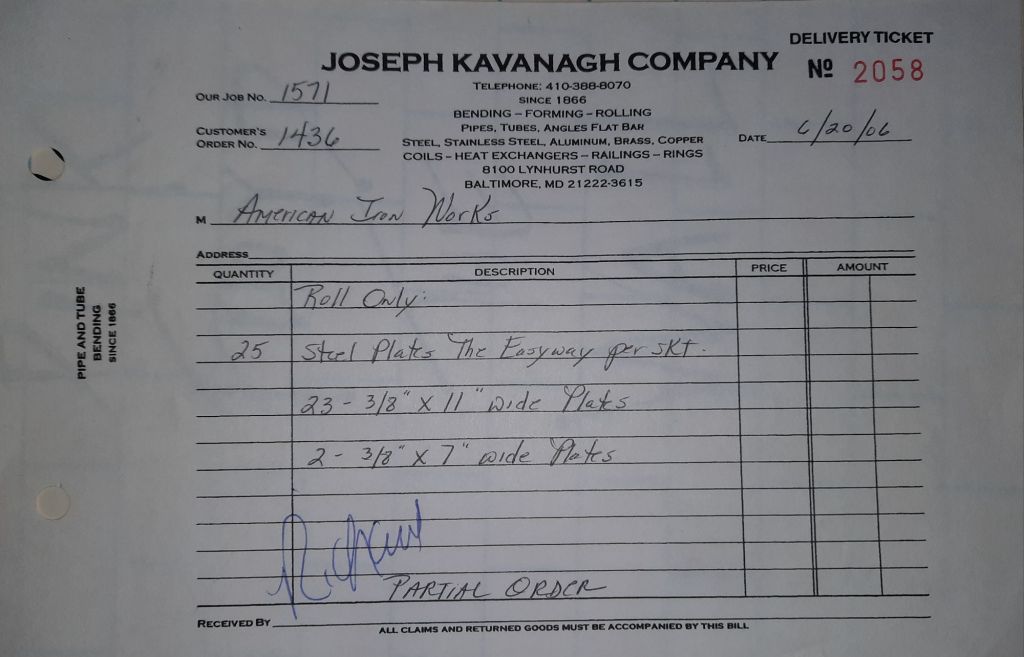 DELIVERY TICKET
JOSEPH KAVANAGH COMPANY
Nº 2058
TELEPHONE: 410-388-8070
OUR JOB NO. 1571
SINCE 1866
BENDING – FORMING – ROLLING
PIPES, TUBES, ANGLES FLAT BAR
CUSTOMER'S
ORDER NO. 1436
STEEL, STAINLESS STEEL, ALUMINUM, BRASS, COPPER
DATE 6/20/06
COILS – HEAT EXCHANGERS – RAILINGS – RINGS
8100 LYNHURST ROAD
BALTIMORE, MD 21222-3615
M American Iron Works
ADDRESS
QUANTITY DESCRIPTION PRICE AMOUNT
Roll Only:
25 Steel Plates The Easyway per SKT.
23 - 3/8" X 11" wide Plates
2 - 3/8" X 7" wide Plates
PARTIAL ORDER
RECEIVED BY
ALL CLAIMS AND RETURNED GOODS MUST BE ACCOMPANIED BY THIS BILL
PIPE AND TUBE
BENDING
SINCE 1866